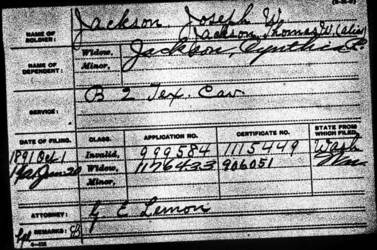 NAME OF SOLDIER: Jackson, Joseph W.
Jackson, Thomas W. (alias)
NAME OF DEPENDENT: Widow, Jackson, Cynthia
Minor,
SERVICE: B 2 Tex. Cav
DATE OF FILING. CLASS. APPLICATION NO. CERTIFICATE NO. STATE FROM WHICH FILED.
1891 Oct 1 Invalid, 999584 1115449 Wash
Widow, 1176433 906051
Minor,
ATTORNEY: G E Lemon
REMARKS: